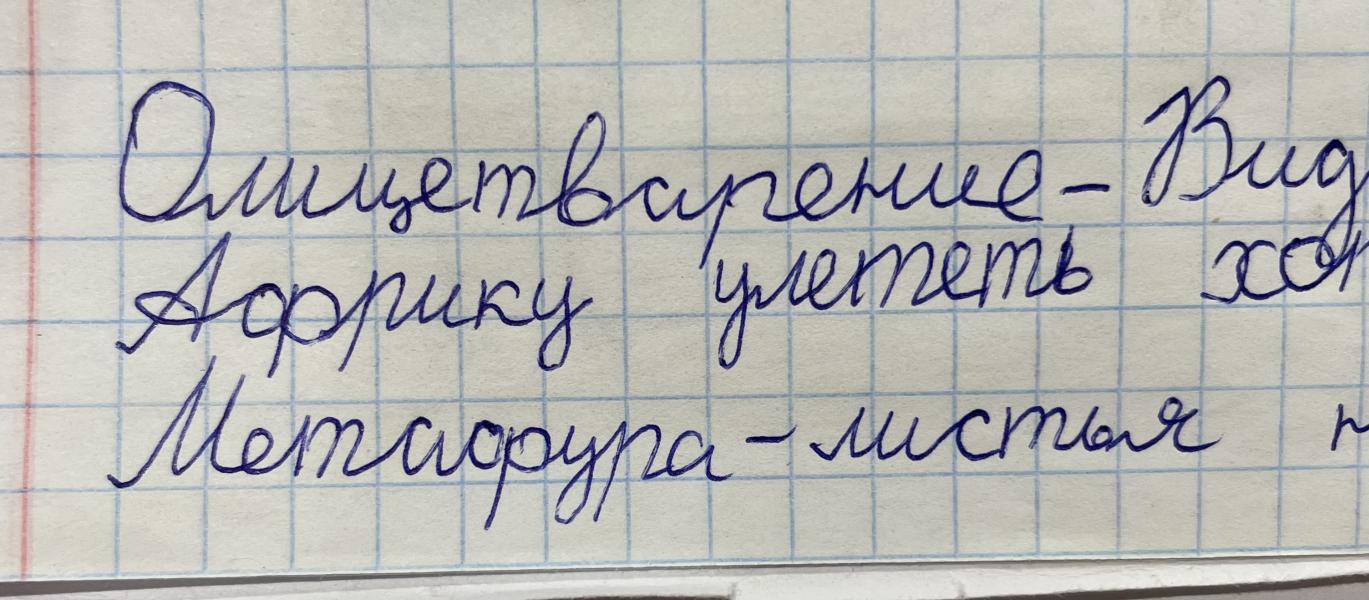 Олицетварение - Вид
Африку улететь хот
Метафура - листья